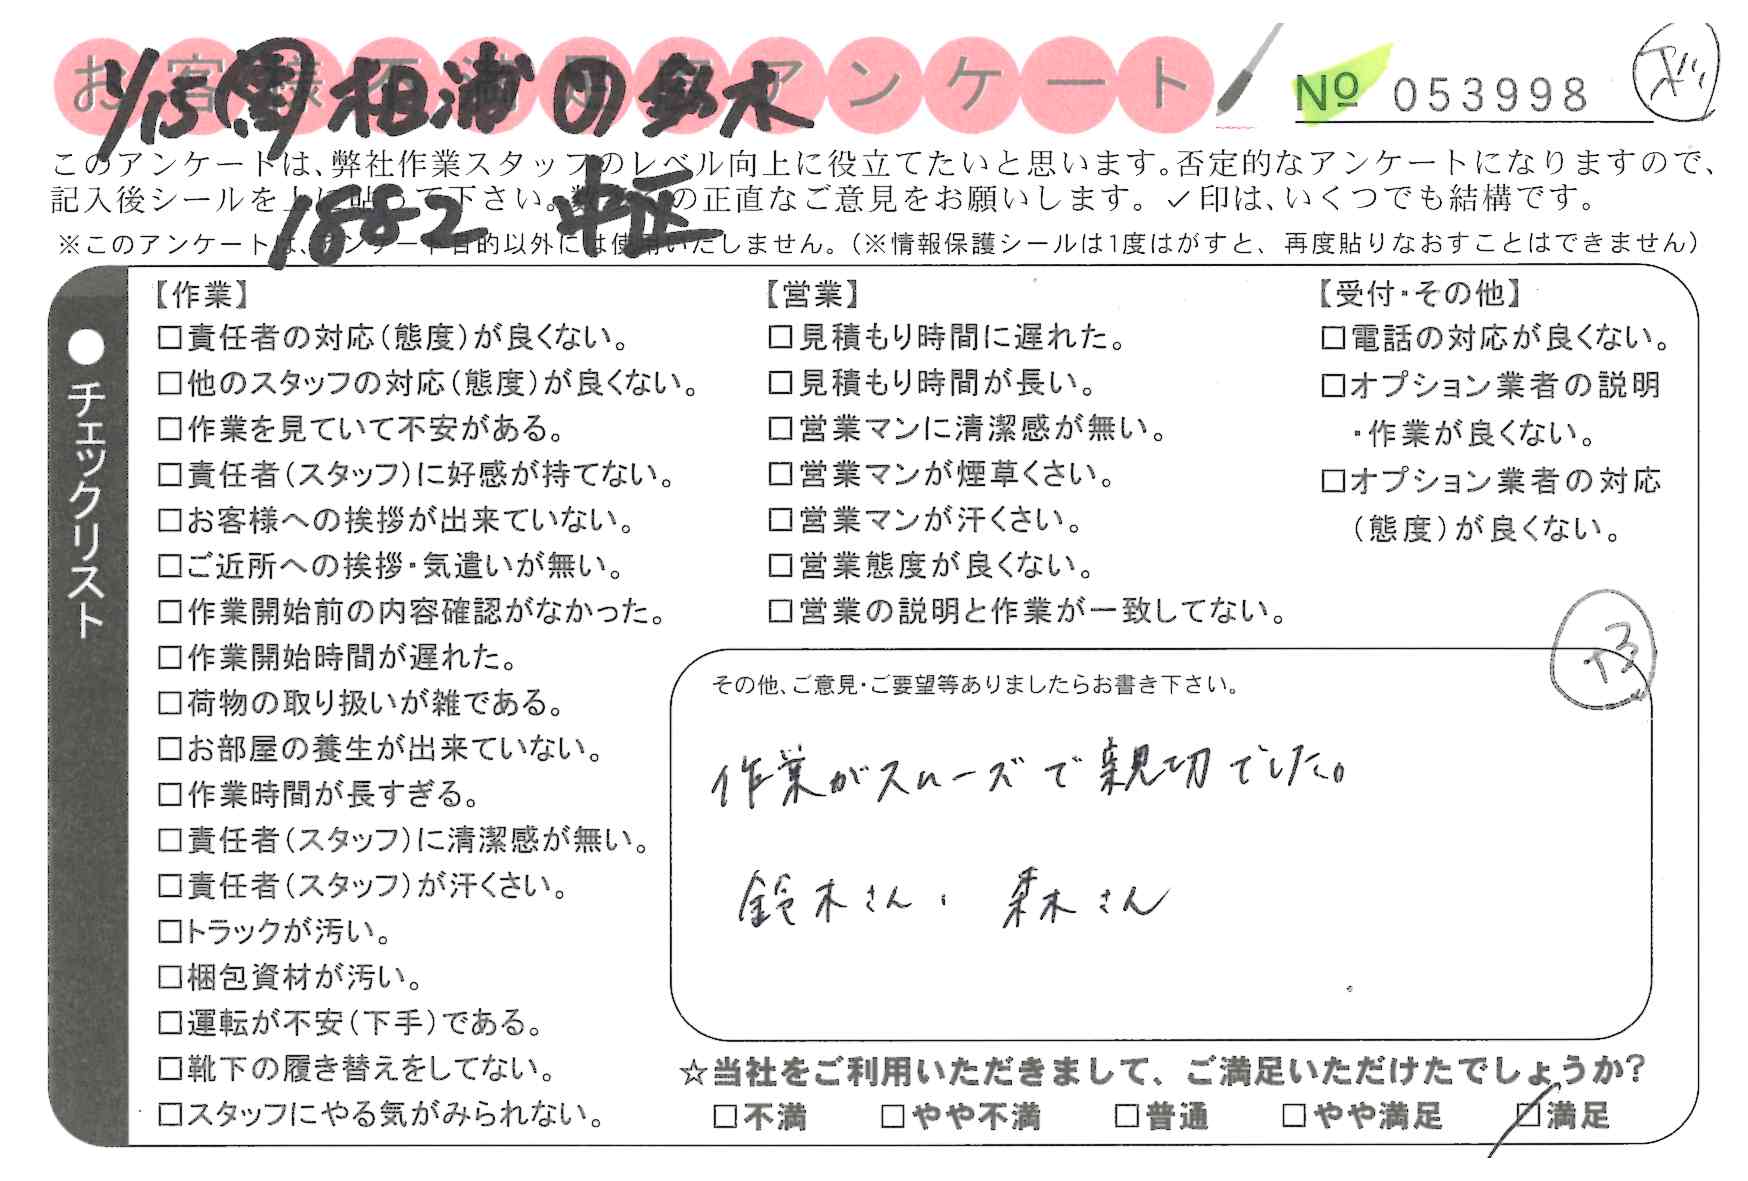 お客様不満足度アンケート
11/15(周) 相浦 ⑪ 鈴木
№ 053998
このアンケートは、弊社作業スタッフのレベル向上に役立てたいと思います。否定的なアンケートになりますので、
記入後シールを上に貼って下さい。の正直なご意見をお願いします。✓印は、いくつでも結構です。
1882 中正
※このアンケートは、アンケート目的以外には使用いたしません。(※情報保護シールは1度はがすと、再度貼りなおすことはできません)
●チェックリスト
【作業】
□責任者の対応(態度)が良くない。
□他のスタッフの対応(態度)が良くない。
□作業を見ていて不安がある。
□責任者(スタッフ)に好感が持てない。
□お客様への挨拶が出来ていない。
□ご近所への挨拶・気遣いが無い。
□作業開始前の内容確認がなかった。
□作業開始時間が遅れた。
□荷物の取り扱いが雑である。
□お部屋の養生が出来ていない。
□作業時間が長すぎる。
□責任者(スタッフ)に清潔感が無い。
□責任者(スタッフ)が汗くさい。
□トラックが汚い。
□梱包資材が汚い。
□運転が不安(下手)である。
□靴下の履き替えをしてない。
□スタッフにやる気がみられない。
【営業】
□見積もり時間に遅れた。
□見積もり時間が長い。
□営業マンに清潔感が無い。
□営業マンが煙草くさい。
□営業マンが汗くさい。
□営業態度が良くない。
□営業の説明と作業が一致してない。
【受付・その他】
□電話の対応が良くない。
□オプション業者の説明
・作業が良くない。
□オプション業者の対応
(態度)が良くない。
その他、ご意見・ご要望等ありましたらお書き下さい。
+3
作業がスムーズで親切でした。
鈴木さん、森木さん
☆当社をご利用いただきまして、ご満足いただけたでしょうか?
□不満 □やや不満 □普通 □やや満足 □満足